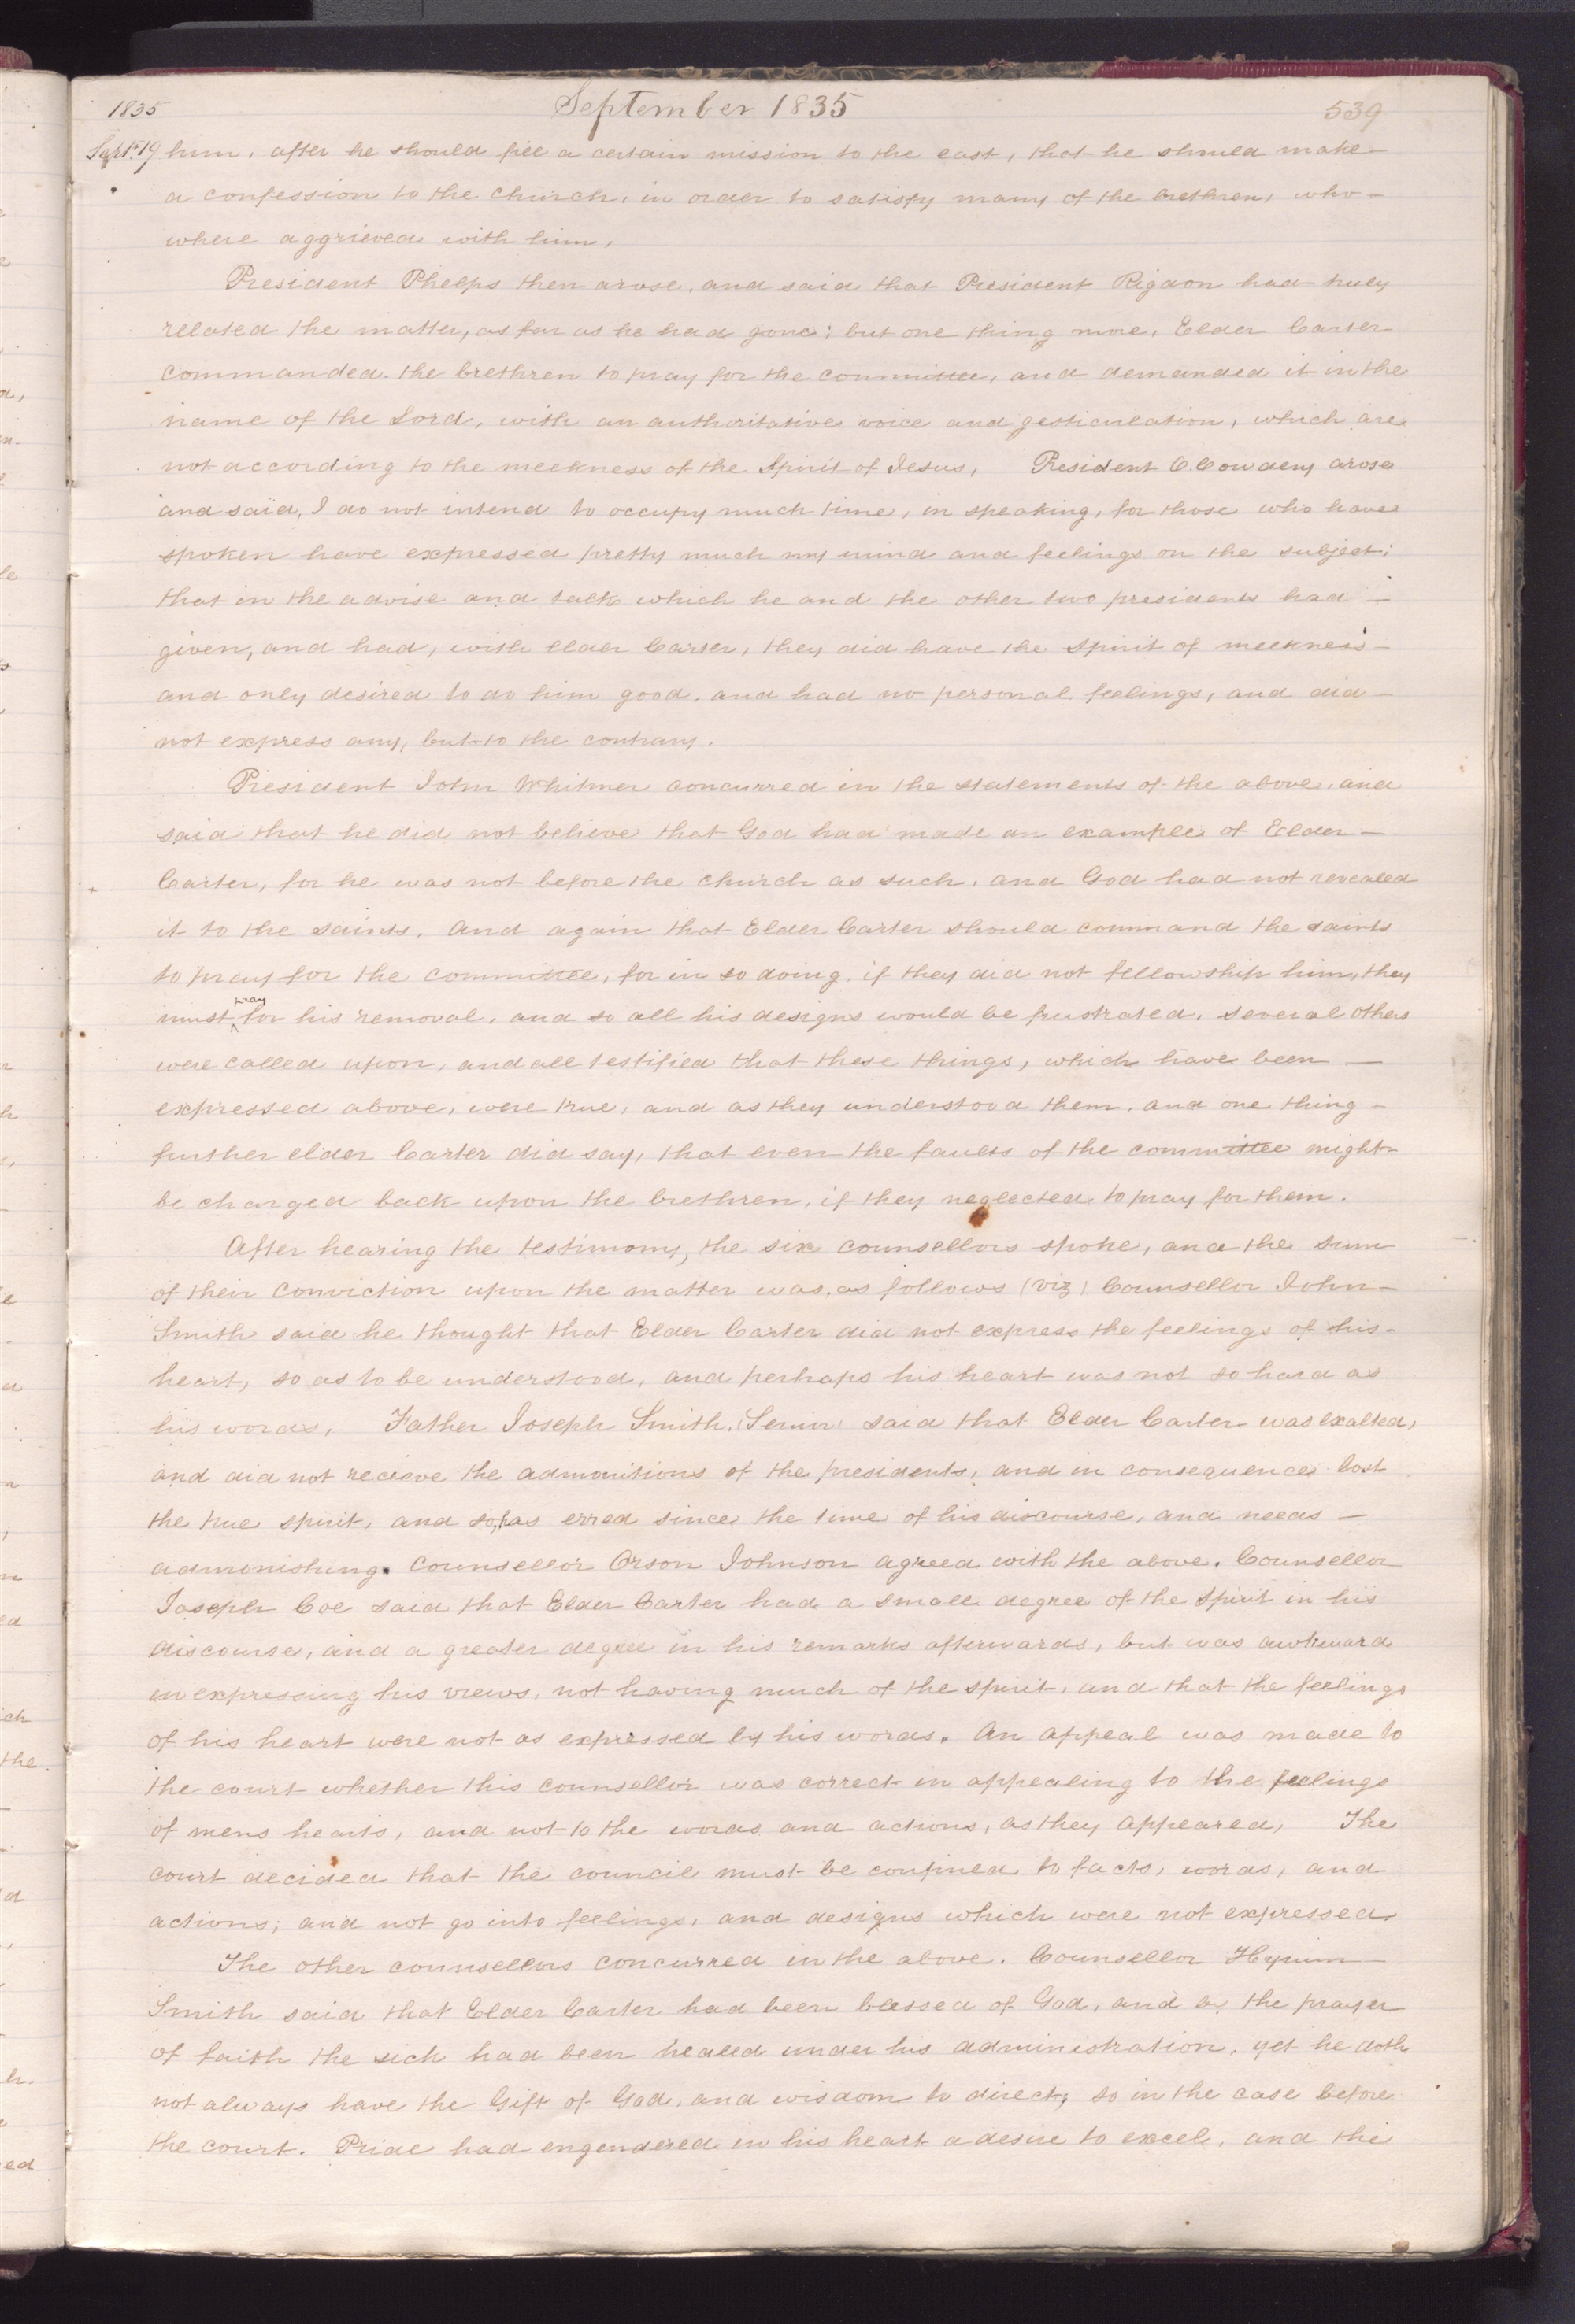 1835 September 1835 539
Sept. 19 him, after he should fill a certain mission to the east, that he should make—
a confession to the church, in order to satisfy many of the brethren, who—
where aggrieved with him,
President Phelps then arose, and said that President Rigdon had truly
related the matter, as far as he had gone; but one thing more, Elder Carter
commanded the brethren to pray for the committee, and demanded it in the
name of the Lord, with an authoritative voice and gesticulation, which are
not according to the meekness of the Spirit of Jesus, President O. Cowdery arose
and said, I do not intend to occupy much time, in speaking, for those who have
spoken have expressed pretty much my mind and feelings on the subject;
that in the advise and talk which he and the other two presidents had—
given, and had, with elder Carter, they did have the Spirit of meekness—
and only desired to do him good, and had no personal feelings, and did—
not express any, but to the contrary.
President John Whitmer concurred in the statements of the above, and
said that he did not believe that God had made an example of Elder—
Carter, for he was not before the church as such, and God had not revealed
it to the saints, And again that Elder Carter should command the saints
to pray for the committee, for in so doing, if they did not fellowship him, they
must ^pray for his removal, and so all his designs would be frustrated, several others
were called upon, and all testified that these things, which have been —
expressed above, were true, and as they understood them, and one thing—
further elder Carter did say, that even the faults of the committee might—
be charged back upon the brethren, if they neglected to pray for them.
After hearing the testimony, the six counsellors spoke, and the sum
of their conviction upon the matter was, as follows (viz) Counsellor John—
Smith said he thought that Elder Carter did not express the feelings of his—
heart, so as to be understood, and perhaps his heart was not so hard as
his words, Father Joseph Smith, (Senior) said that Elder Carter was exalted,
and did not recieve the admonitions of the presidents, and in consequence lost
the true spirit, and so, has erred since the time of his discourse, and needs —
admonishing. Counsellor Orson Johnson agreed with the above. Counsellor
Joseph Coe said that Elder Carter had a small degree of the Spirit in his
discourse, and a greater degree in his remarks afterwards, but was awkward
in expressing his views, not having much of the spirit, and that the feelings
of his heart were not as expressed by his words. An appeal was made to
the court whether this counsellor was correct in appealing to the feelings
of mens hearts, and not to the words and actions, as they appeared, The
court decided that the council must be confined to facts, words, and
actions; and not go into feelings, and designs which were not expressed.
The other counsellors concurred in the above. Counsellor Hyrum—
Smith said that Elder Carter had been blessed of God, and by the prayer
of faith the sick had been healed under his administration, yet he doth
not always have the Gift of God, and wisdom to direct, so in the case before
the court. Pride had engendered in his heart a desire to excel, and the